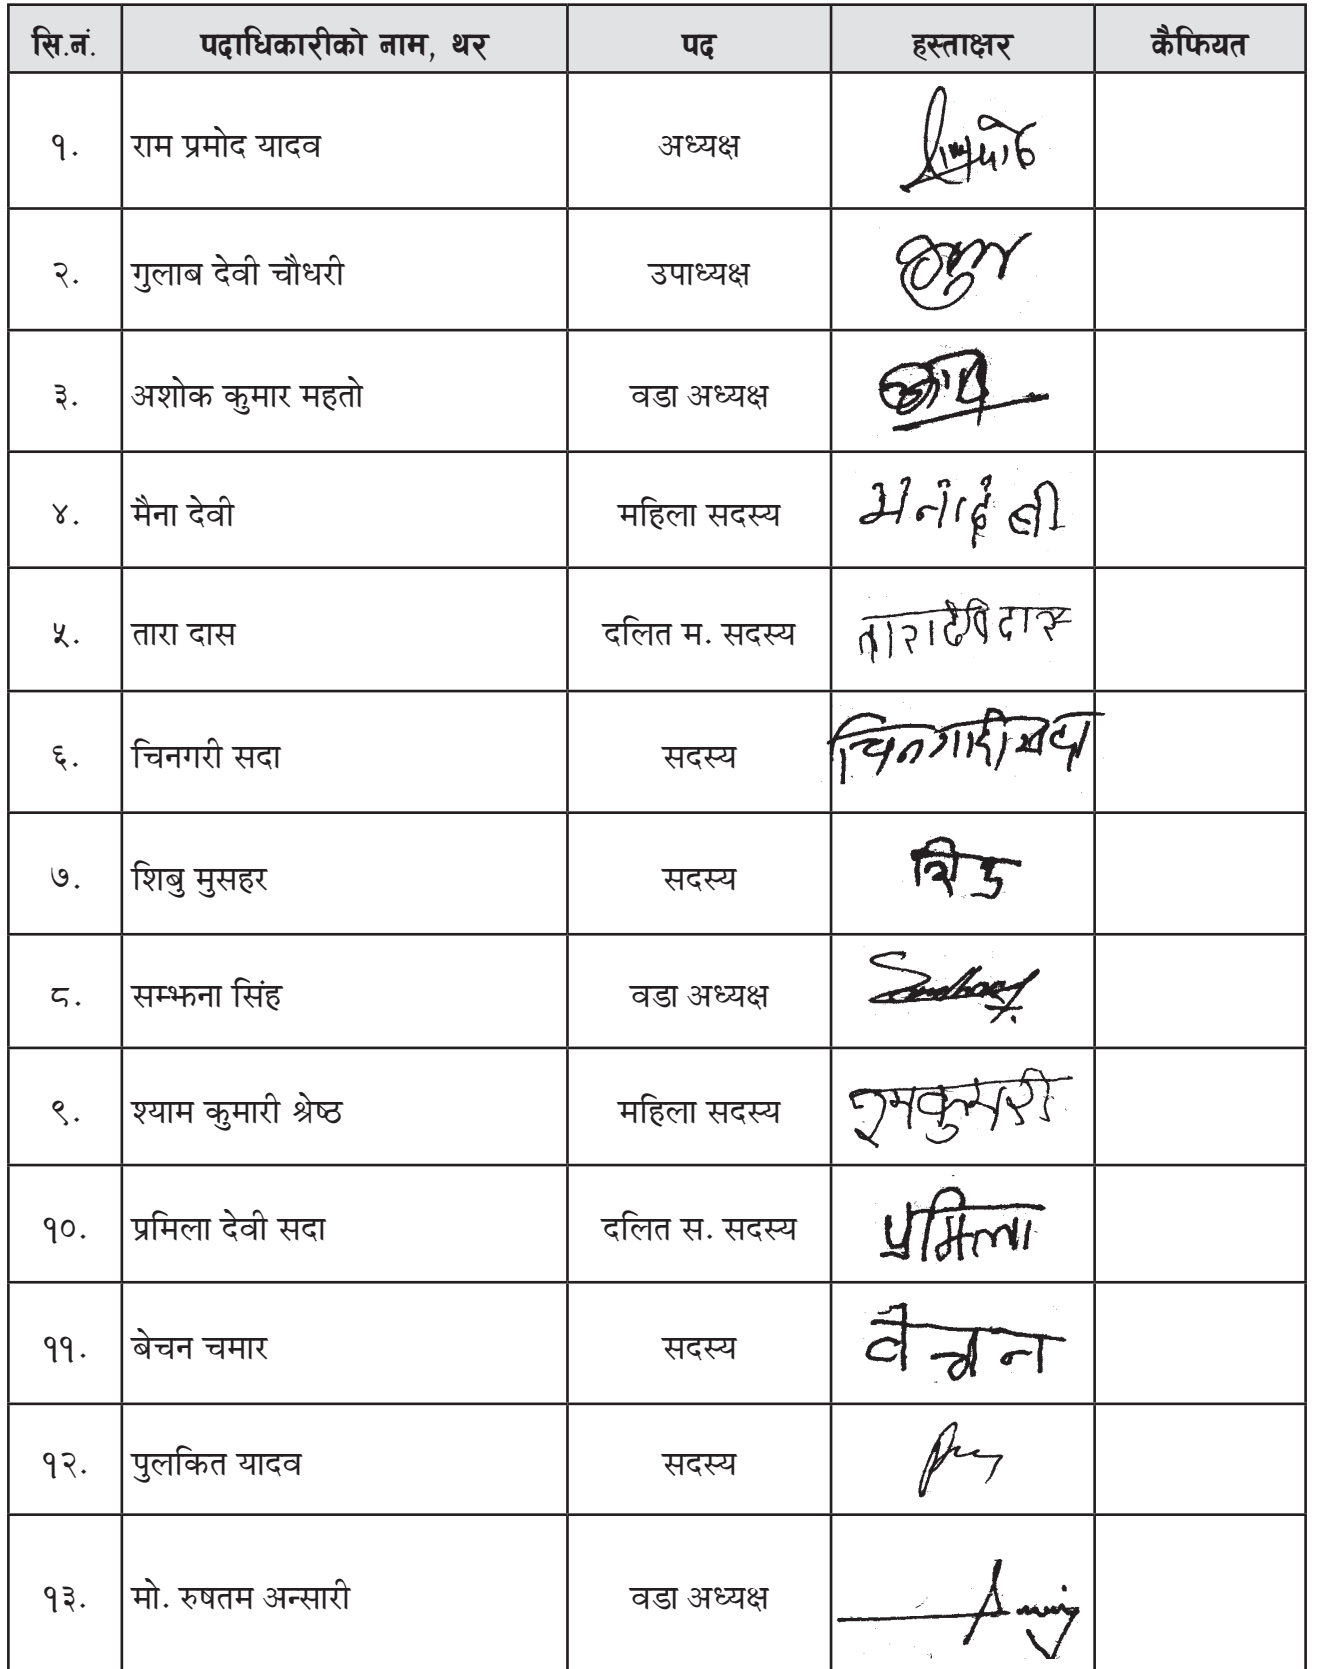 सि.नं. पदाधिकारीको नाम, थर पद हस्ताक्षर कैफियत
१. राम प्रमोद यादव अध्यक्ष
२. गुलाब देवी चौधरी उपाध्यक्ष
३. अशोक कुमार महतो वडा अध्यक्ष
४. मैना देवी महिला सदस्य मैनादेवी
५. तारा दास दलित म. सदस्य तारादेवि दास
६. चिनगरी सदा सदस्य चिनगारी सदा
७. शिबु मुसहर सदस्य
८. सम्झना सिंह वडा अध्यक्ष
९. श्याम कुमारी श्रेष्ठ महिला सदस्य
१०. प्रमिला देवी सदा दलित स. सदस्य प्रमिला
११. बेचन चमार सदस्य वेचन
१२. पुलकित यादव सदस्य
१३. मो. रुषतम अन्सारी वडा अध्यक्ष